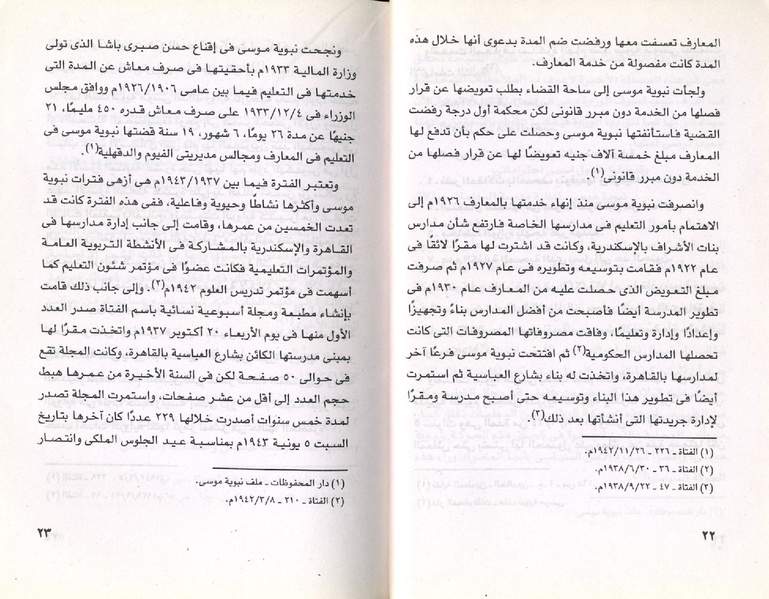 المعارف تعسفت معها ورفضت ضم المدة بدعوى أنها خلال هذه
المدة كانت مفصولة من خدمة المعارف.
ولجأت نبوية موسى إلى ساحة القضاء بطلب تعويضها عن قرار
فصلها من الخدمة دون مبرر قانونى لكن محكمة أول درجة رفضت
القضية فاستأنفتها نبوية موسى وحصلت على حكم بأن تدفع لها
المعارف مبلغ خمسة آلاف جنيه تعويضًا لها عن قرار فصلها من
الخدمة دون مبرر قانونى(١).
وانصرفت نبوية موسى منذ إنهاء خدمتها بالمعارف ١٩٢٦م إلى
الاهتمام بأمور التعليم فى مدارسها الخاصة فارتفع شأن مدارس
بنات الأشراف بالإسكندرية، وكانت قد اشترت لها مقرًا لائقًا فى
عام ١٩٢٢م فقامت بتوسيعه وتطويره فى عام ١٩٢٧م ثم صرفت
مبلغ التعويض الذى حصلت عليه من المعارف عام ١٩٣٠م فى
تطوير المدرسة أيضًا فأصبحت من أفضل المدارس بناءً وتجهيزًا
وإعدادًا وإدارة وتعليمًا، وفاقت مصروفاتها المصروفات التى كانت
تحصلها المدارس الحكومية(٢) ثم افتتحت نبوية موسى فرعًا آخر
لمدارسها بالقاهرة، واتخذت له بناء بشارع العباسية ثم استمرت
أيضًا فى تطوير هذا البناء وتوسيعه حتى أصبح مدرسة ومقرًا
لإدارة جريدتها التى أنشأتها بعد ذلك(٣).
(١) الفتاة ـ ٢٢٦ ـ ١٩٤٢/١١/٢٦م.
(٢) الفتاة ـ ٣٦ ـ ١٩٣٨/٦/٣٠م.
(٣) الفتاة ـ ٤٧ ـ ١٩٣٨/٩/٢٢م.
٢٢
ونجحت نبوية موسى فى إقناع حسن صبرى باشا الذى تولى
وزارة المالية ١٩٣٣م بأحقيتها فى صرف معاش عن المدة التى
خدمتها فى التعليم فيما بين عامى ١٩٢٦/١٩٠٦م ووافق مجلس
الوزراء فى ١٩٣٣/١٢/٤ على صرف معاش قدره ٤٥٠ مليمًا، ٢١
جنيهًا عن مدة ٢٦ يومًا، ٦ شهور، ١٩ سنة قضتها نبوية موسى فى
التعليم فى المعارف ومجالس مديريتى الفيوم والدقهلية(١).
وتعتبر الفترة فيما بين ١٩٤٣/١٩٣٧م هى أزهى فترات نبوية
موسى وأكثرها نشاطًا وحيوية وفاعلية، ففى هذه الفترة كانت قد
تعدت الخمسين من عمرها، وقامت إلى جانب إدارة مدارسها فى
القاهرة والإسكندرية بالمشاركة فى الأنشطة التربوية العامة
والمؤتمرات التعليمية فكانت عضوًا فى مؤتمر شئون التعليم كما
أسهمت فى مؤتمر تدريس العلوم ١٩٤٢م(٢). وإلى جانب ذلك قامت
بإنشاء مطبعة ومجلة أسبوعية نسائية باسم الفتاة صدر العدد
الأول منها فى يوم الأربعاء ٢٠ أكتوبر ١٩٣٧م واتخذت مقرًا لها
بمبنى مدرستها الكائن بشارع العباسية بالقاهرة، وكانت المجلة تقع
فى حوالى ٥٠ صفحة لكن فى السنة الأخيرة من عمرها هبط
حجم العدد إلى أقل من عشر صفحات، واستمرت المجلة تصدر
لمدة خمس سنوات أصدرت خلالها ٢٢٩ عددًا كان آخرها بتاريخ
السبت ٥ يونية ١٩٤٣م بمناسبة عيد الجلوس الملكى وانتصار
(١) دار المحفوظات ـ ملف نبوية موسى.
(٢) الفتاة ـ ٢١٠ ـ ١٩٤٢/٣/٨م.
٢٣